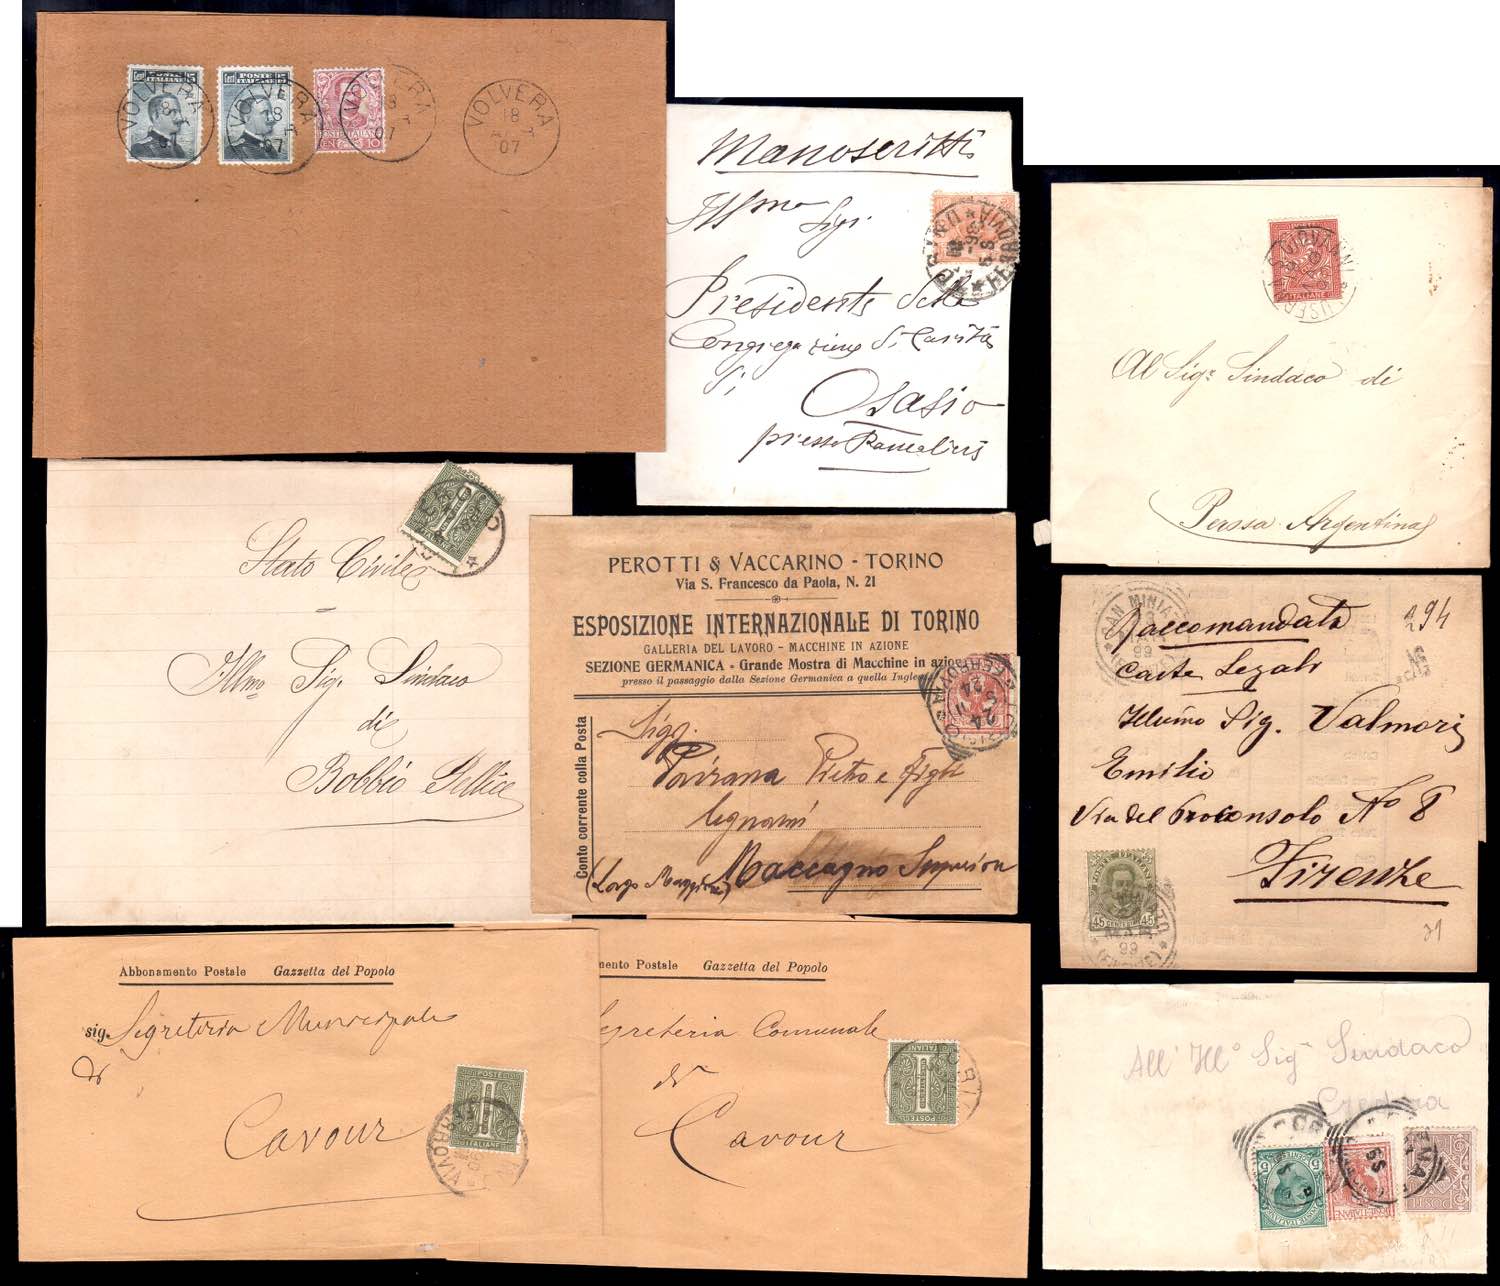 VOLVERA
18
07
POSTE ITALIANE
VOLVERA
18
07
POSTE ITALIANE
CENT. 10
VOLVERA
18
07
VOLVERA
18
07
Manoscritti
Illmo Sigr
Presidente della
Congregazione di Carità
di
Osasio
presso Pancalieri
Al Sigr Sindaco di
Perosa Argentina
Stato Civile
Illmo Sig. Sindaco
di
Bobbio Pellice
PEROTTI & VACCARINO - TORINO
Via S. Francesco da Paola, N. 21
ESPOSIZIONE INTERNAZIONALE DI TORINO
GALLERIA DEL LAVORO - MACCHINE IN AZIONE
SEZIONE GERMANICA - Grande Mostra di Macchine in azio
presso il passaggio dalla Sezione Germanica a quella Ingles
Conto corrente colla Posta
Sigg.
Pietro e figli
Legnami
Maccagno Superiore
(Lago Maggiore)
SAN MINIATO
99
Raccomandata
294
Carte Legali
Illmo Sig. Valmori
Emilio
Via del Proconsolo No 8
Firenze
45 CENTESIMI 45
MAR
99
(FIRENZE)
21
Abbonamento Postale Gazzetta del Popolo
sig. Segreteria Municipale
di
Cavour
POSTE
1
ITALIANE
FERROVIA
mento Postale Gazzetta del Popolo
Segreteria Comunale
di
Cavour
ITALIANE
1
POSTE
All' Ill° Sigr Sindaco
Credera